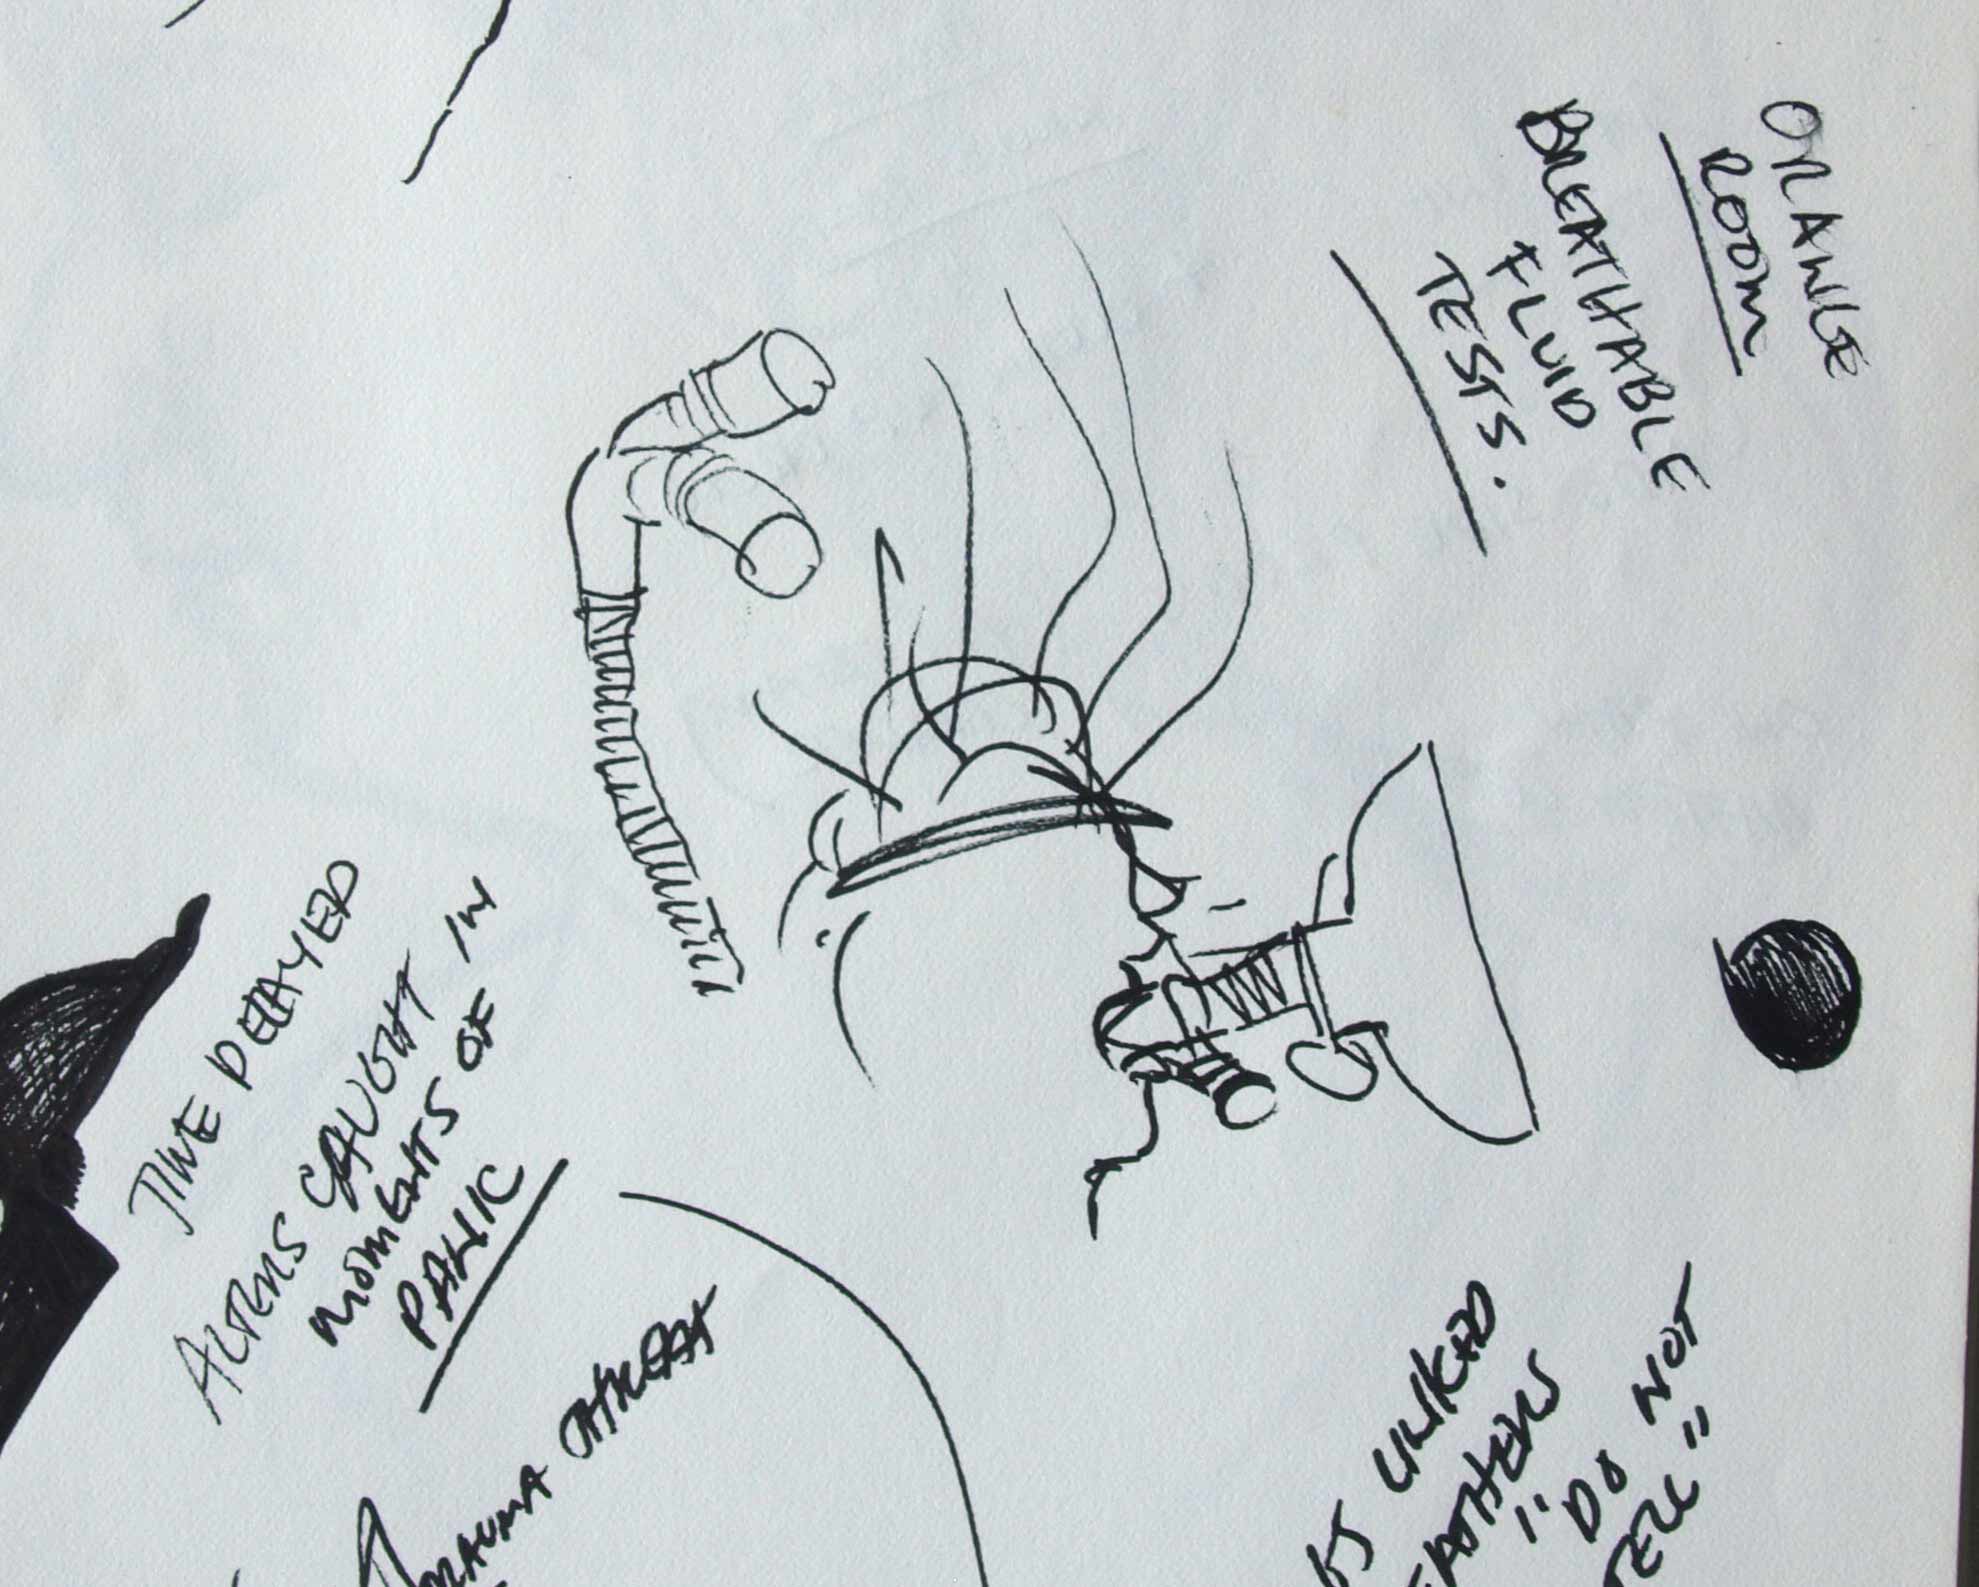 ORANGE
ROOM
BREATHABLE
FLUID
TESTS.
TIME DELAYED
ALTERS CAUGHT IN
MOMENTS OF
PANIC
TRAUMA THREAT
LINKED
"DO NOT